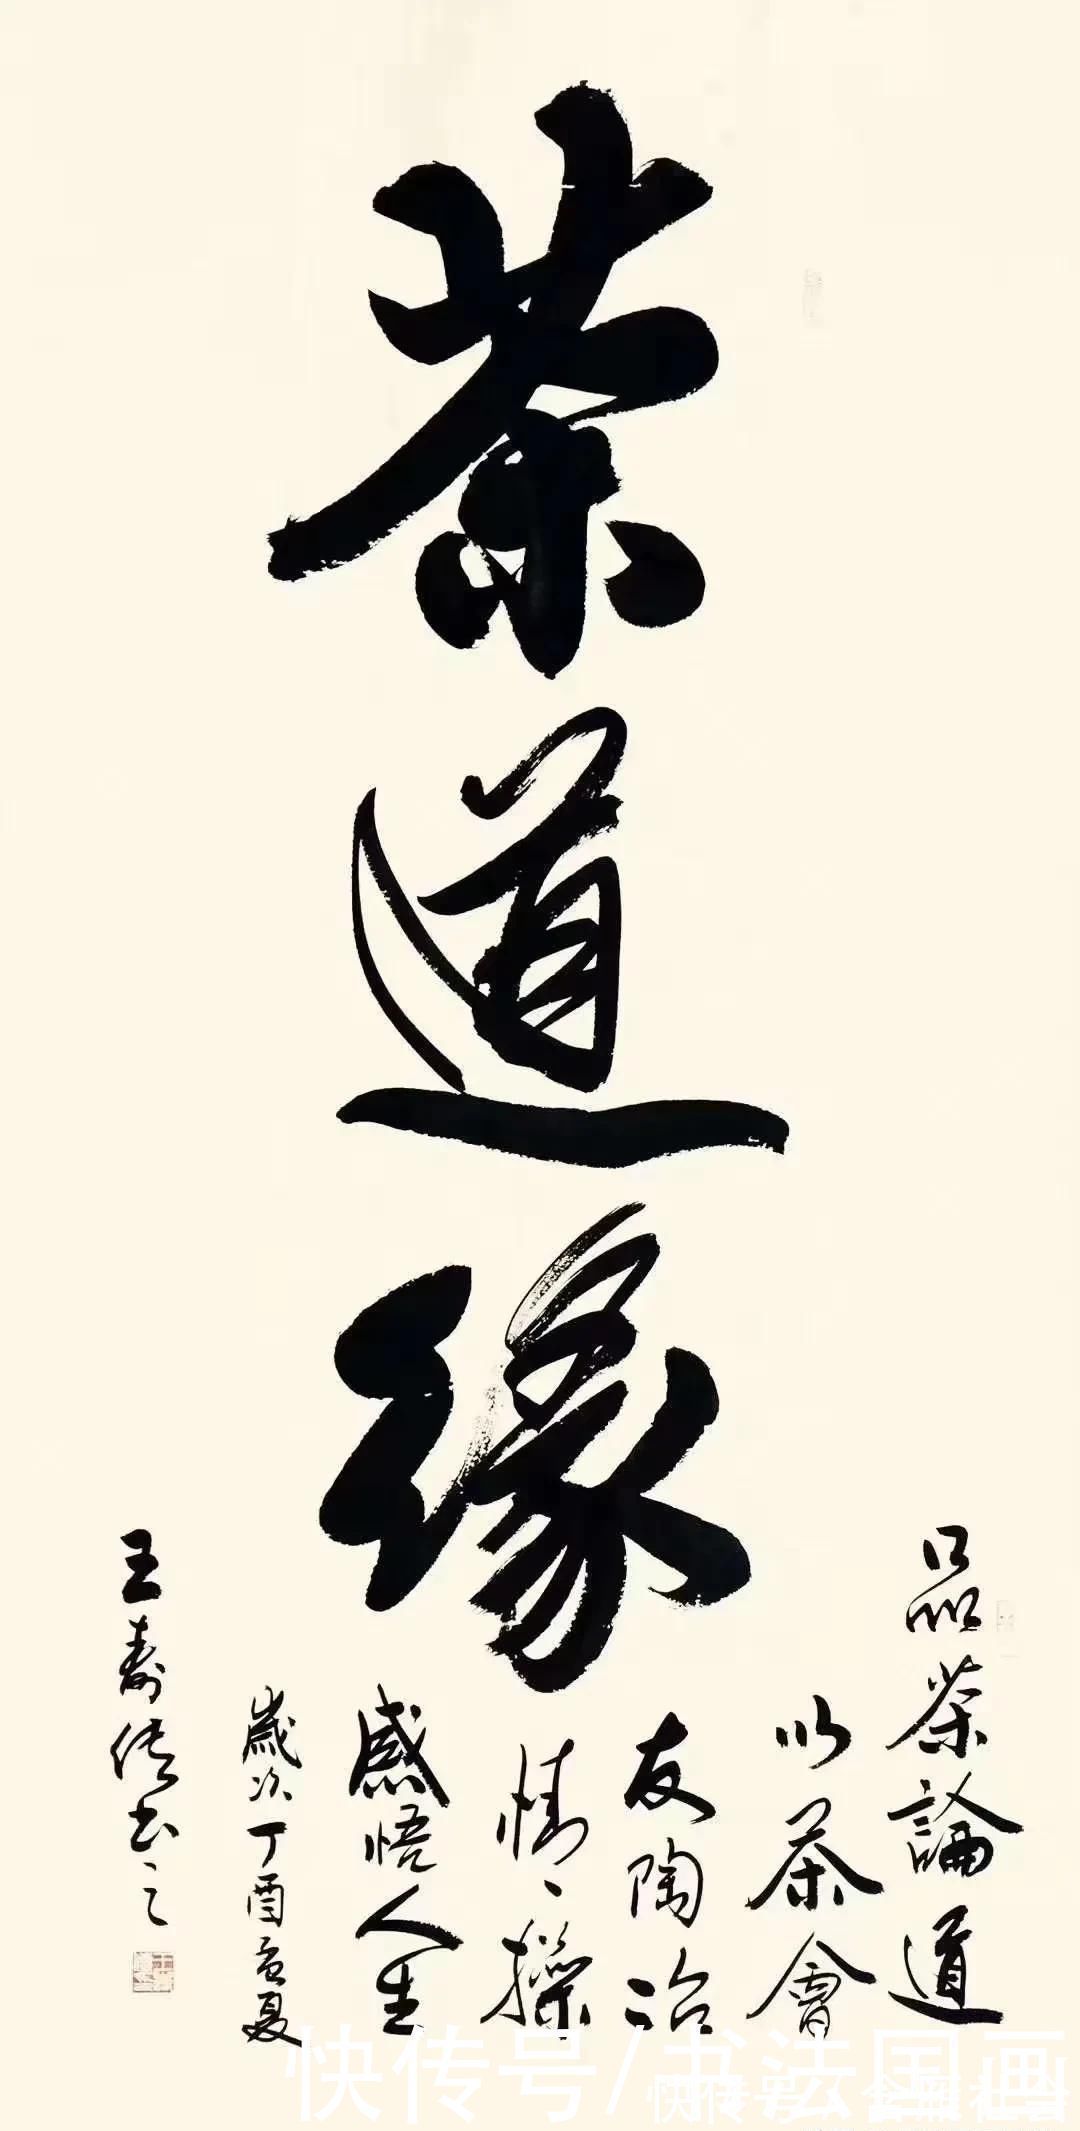 茶道缘
品茶論道
以茶會
友陶冶
情、操
感悟人生
歲次丁酉立夏
王壽传书之
快传号/书法国画